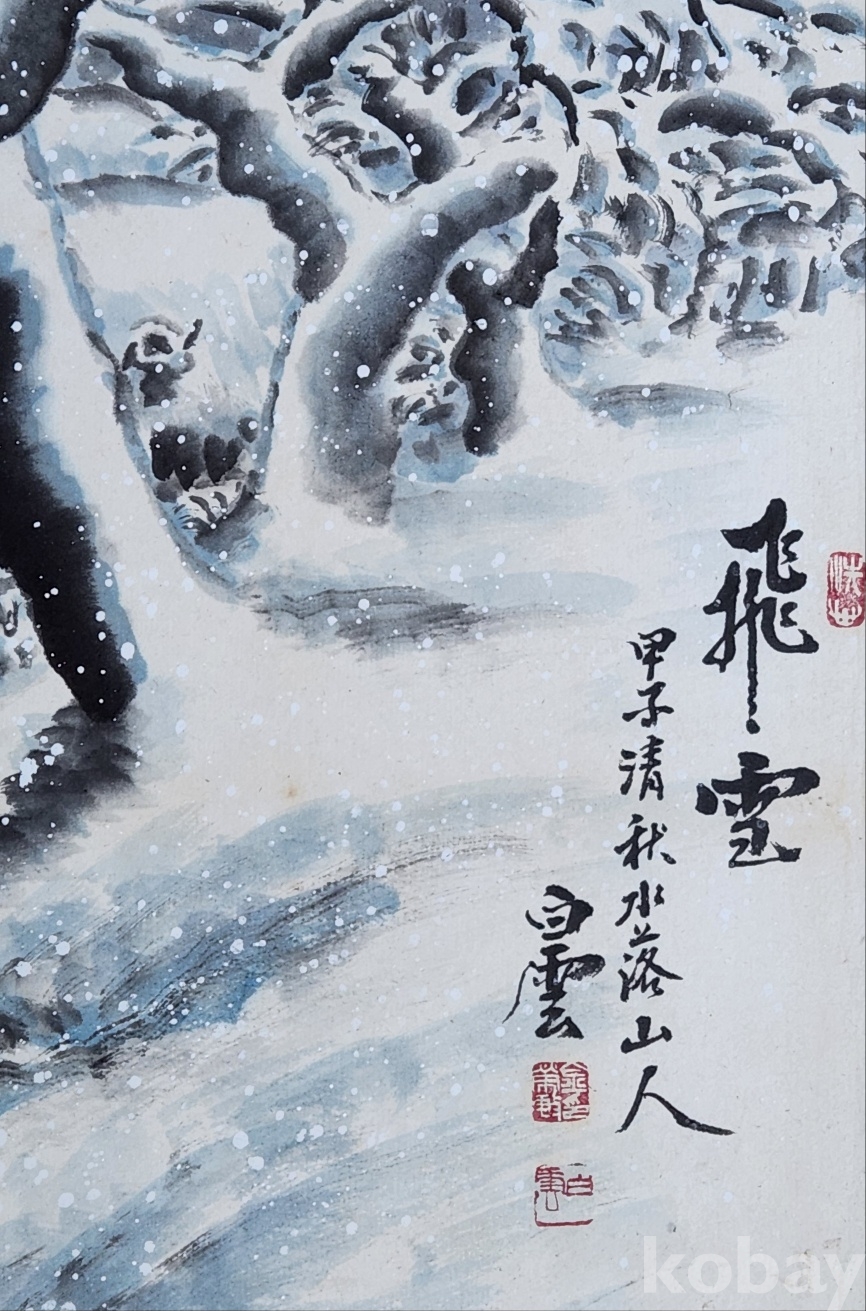 飛雪
甲子清秋水落山人
白雲
白雲
kobay